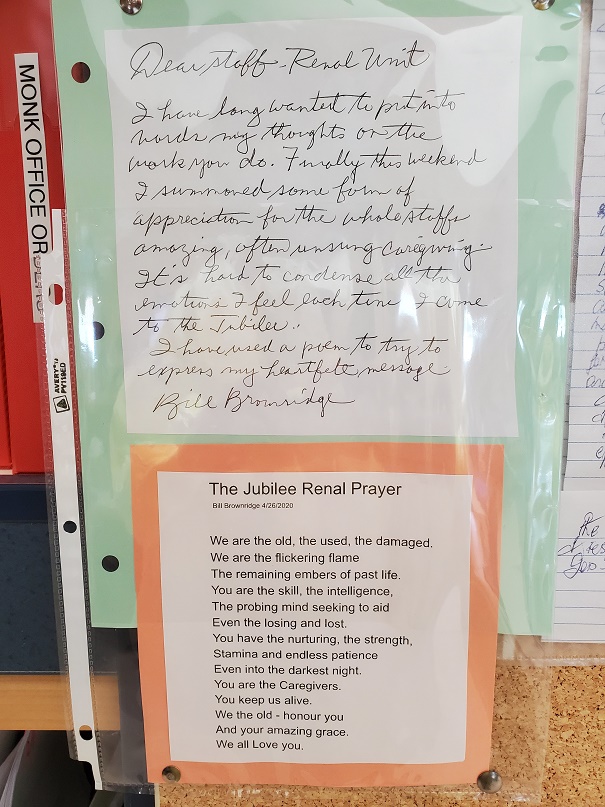 MONK OFFICE OR
AVERY
PV119ED
Dear staff - Renal Unit
I have long wanted to put into
words my thoughts on the
work you do. Finally this weekend
I summoned some form of
appreciation for the whole staffs
amazing, often unsung caregiving.
It's hard to condense all the
emotions I feel each time I come
to the Jubilee.
I have used a poem to try to
express my heartfelt message.
Bill Brownridge
The Jubilee Renal Prayer
Bill Brownridge 4/26/2020
We are the old, the used, the damaged.
We are the flickering flame
The remaining embers of past life.
You are the skill, the intelligence,
The probing mind seeking to aid
Even the losing and lost.
You have the nurturing, the strength,
Stamina and endless patience
Even into the darkest night.
You are the Caregivers.
You keep us alive.
We the old - honour you
And your amazing grace.
We all Love you.